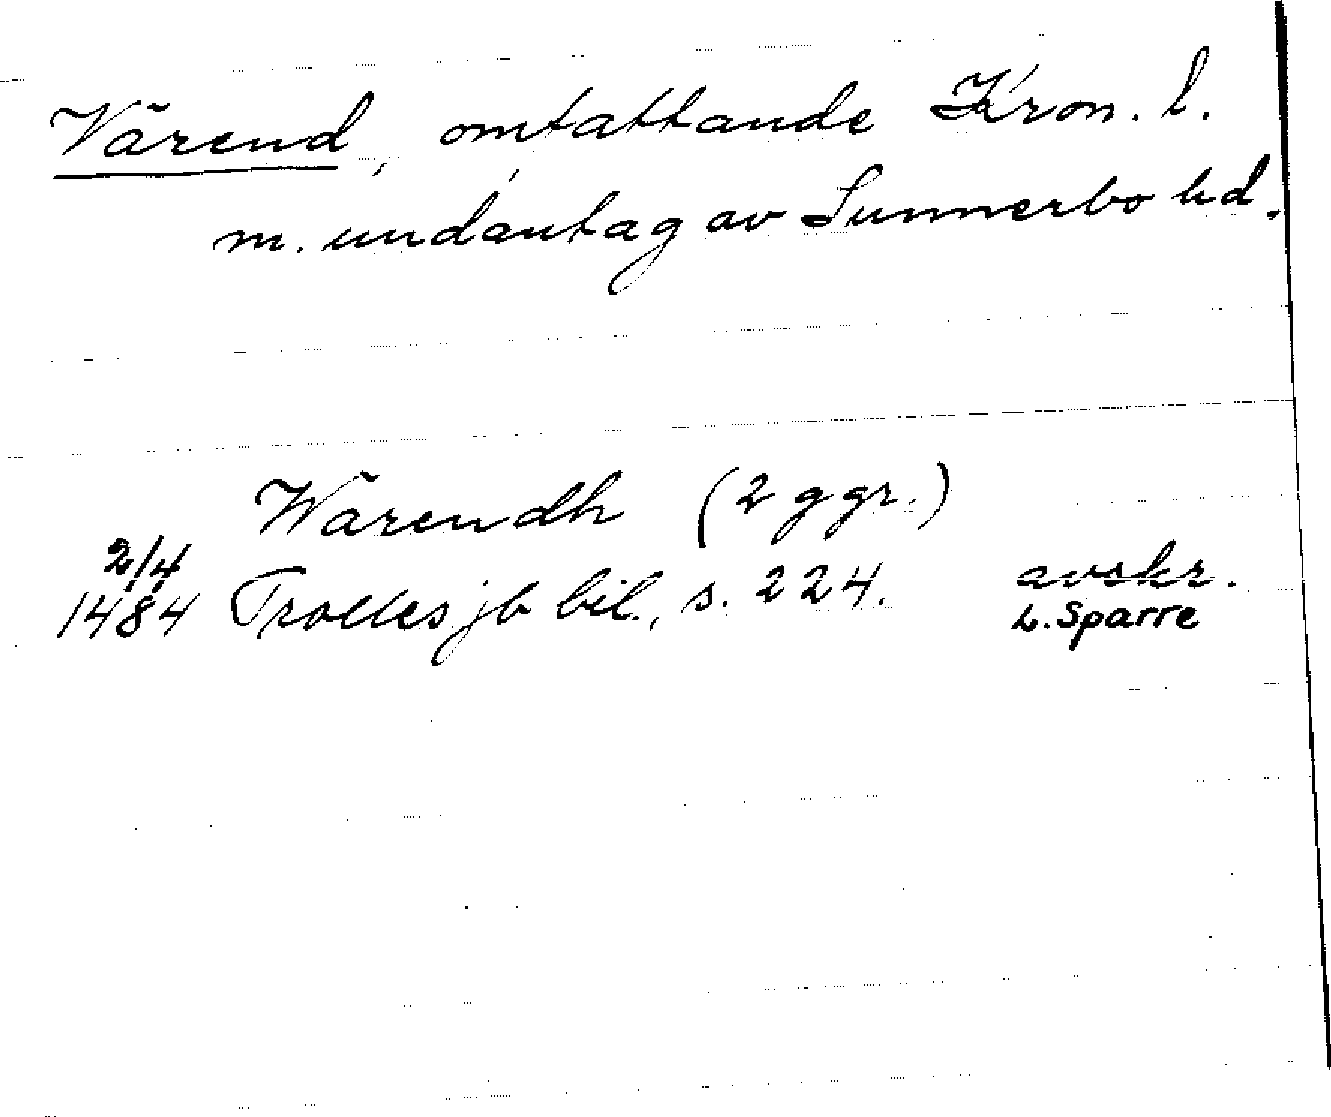 Värend, omfattande Kron. l.
m. undantag av Sunnerbo hd.
Wärendh (2 ggr.)
2/4
1484 Trolles jb bil., s. 224. avskr.
L. Sparre